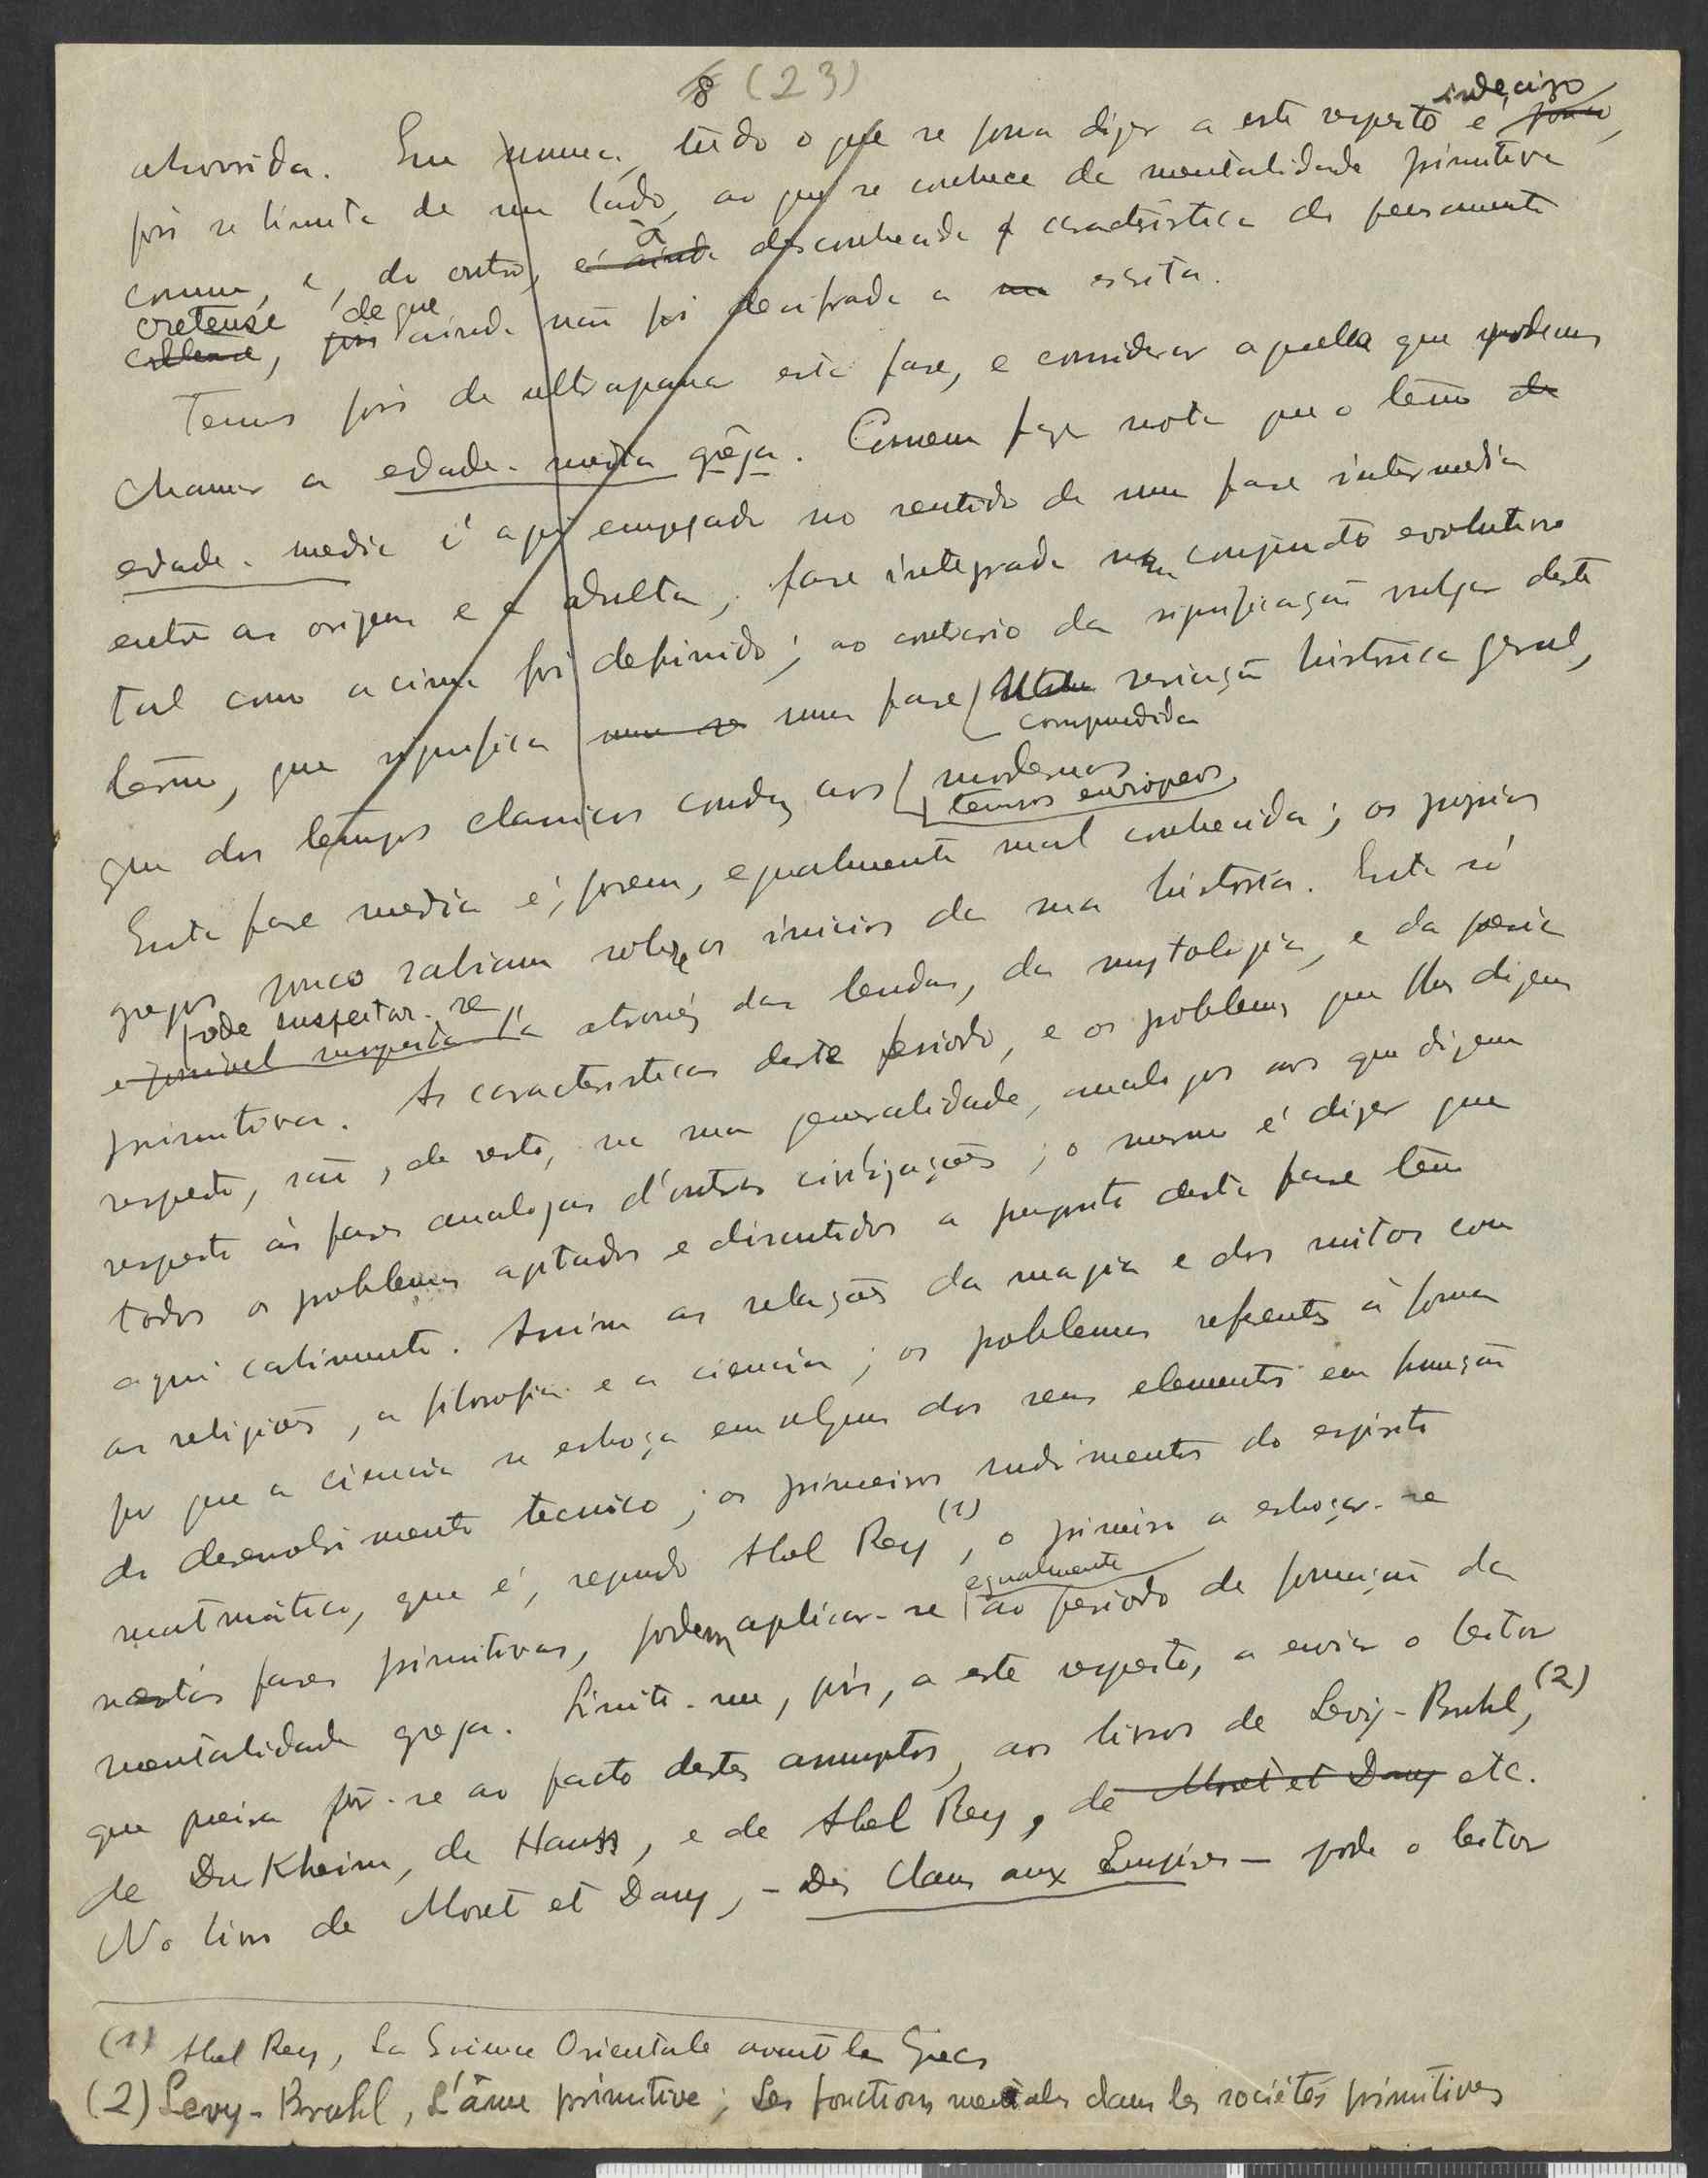 8 (23)
absorvida. Em suma, tudo o que se possa dizer a este respeito é indeciso pouco,
pois se limita de um lado, ao que se conhece da mentalidade primitiva
comum, e, do outro, é ainda a desconhecida a caracteristica do pensamento
cretense, de que pois ainda não foi decifrada a sua escrita.
Temos pois de ultrapassar esta fase, e considerar aquella que podemos
chamar a edade-media grêga. Convem fazer notar que o têrmo de
edade-media é aqui empregado no sentido de uma fase intermedia
entre as origens e a adulta, fase integrada num conjuncto evolutivo
tal como acima foi definido; ao contrario da significação vulgar deste
têrmo, que significa uma fase compreendida seriação historica geral,
que dos tempos classicos conduz aos modernos
tempos europeos.
Esta fase media é, porem, egualmente mal conhecida; os proprios
gregos pouco sabiam sobre os inicios da sua historia. Esta só
pode suspeitar-se
é possivel suspeita-la através das lendas, da mytologia, e da poesia
primitivas. As caracteristicas deste periodo, e os problemas que lhes dizem
respeito, são, de resto, na sua generalidade, analogos aos que dizem
respeito ás fases analogas d'outras civilizações; o mesmo é dizer que
todos os problemas agitados e discutidos a proposito desta fase têm
aqui cabimento. Assim as relações da magia e dos mitos com
as religiões, a filosofia e a ciencia; os problemas referentes á forma
por que a ciencia se esboça em alguns dos seus elementos em função
do desenvolvimento tecnico; os primeiros rudimentos do espirito
matmático, que é, segundo Abel Rey (1), o primeiro a esboçar-se
nestas fases primitivas, podem aplicar-se egualmente ao periodo de formação da
mentalidade grega. Limito-me, pois, a este respeito, a enviar o leitor
que queira pôr-se ao facto destes assumptos, aos livros de Levy-Bruhl, (2)
de Durkheim, de Hauss, e de Abel Rey, de Moret et Davy etc.
No livro de Moret et Davy, - Des Clans aux Empires - pode o leitor
(1) Abel Rey, La Science Orientale avant les Grecs
(2) Levy-Bruhl, L'âme primitive; Les fonctions mentales dans les sociétés primitives